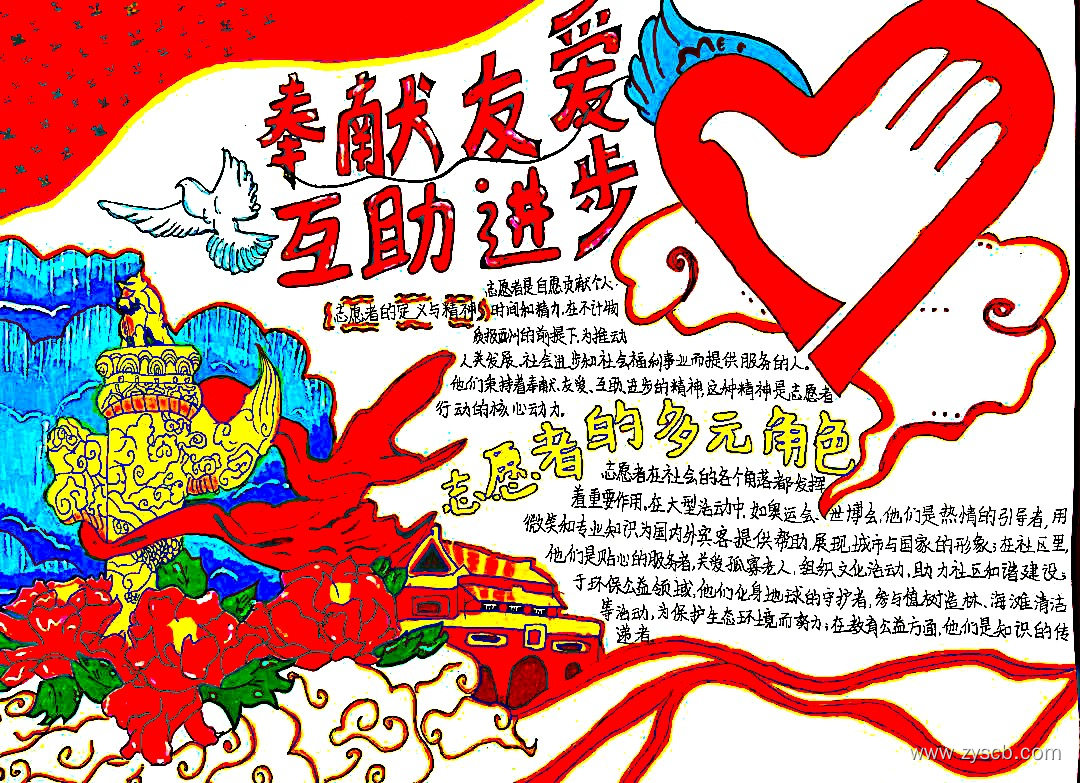 奉献友爱
互助进步
志愿者的定义与精神
志愿者是自愿贡献个人
时间和精力,在不计物
质报酬的前提下,为推动
人类发展、社会进步和社会福利事业而提供服务的人。
他们秉持着奉献、友爱、互助、进步的精神,这种精神是志愿者
行动的核心动力。
志愿者的多元角色
志愿者在社会的各个角落都发挥
着重要作用,在大型活动中,如奥运会、世博会,他们是热情的引导者,用
微笑和专业知识为国内外宾客提供帮助,展现城市与国家的形象;在社区里,
他们是贴心的服务者,关爱孤寡老人、组织文化活动,助力社区和谐建设;
于环保公益领域,他们化身地球的守护者,参与植树造林、海滩清洁
等活动,为保护生态环境而努力;在教育公益方面,他们是知识的传
递者
www.zyscb.com